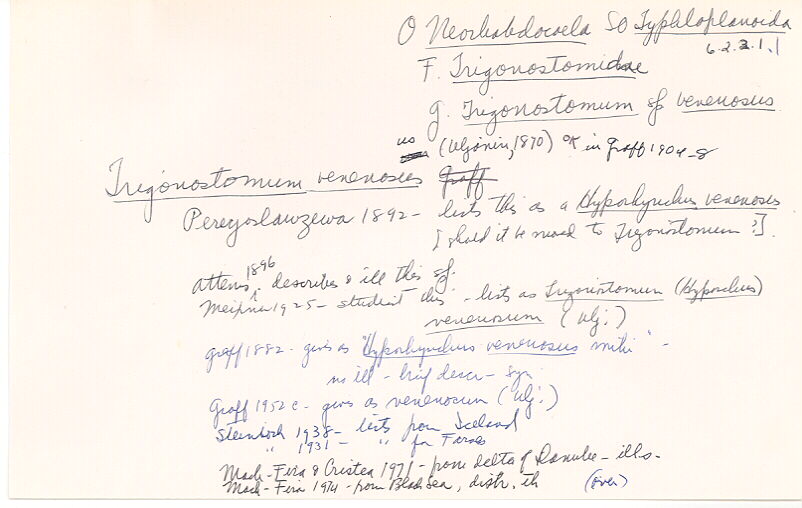 O Neorhabdocoela SO Typhloplanoida
6.2.2.1.1
F. Trigonostomidae
g. Trigonostomum sp venenosus
us (Uljanin, 1870) OK in Graff 1904-8
Trigonostomum venenosus Graff
Pereyaslawzewa 1892 - lists this as a Hyporhynchus venenosus
[should it be moved to Trigonostomum?].
Attems 1896, describes & ill this sp.
Meixner 1925 - studied this - lists as Trigonostomum (Hyporchus)
venenosum (Ulj.)
Graff 1882 - gives as "Hyporhynchus venenosus mihi" -
no ill - brief descr - syn
Graff 1952c - gives as venenosum (Ulj.)
Steinbock 1938 - lists from Iceland
" 1931 - " for Faroes
Mack-Fira & Cristea 1971 - from delta of Danube - ills.
Mack-Fira 1974 - from Black Sea, distr. eth (over)